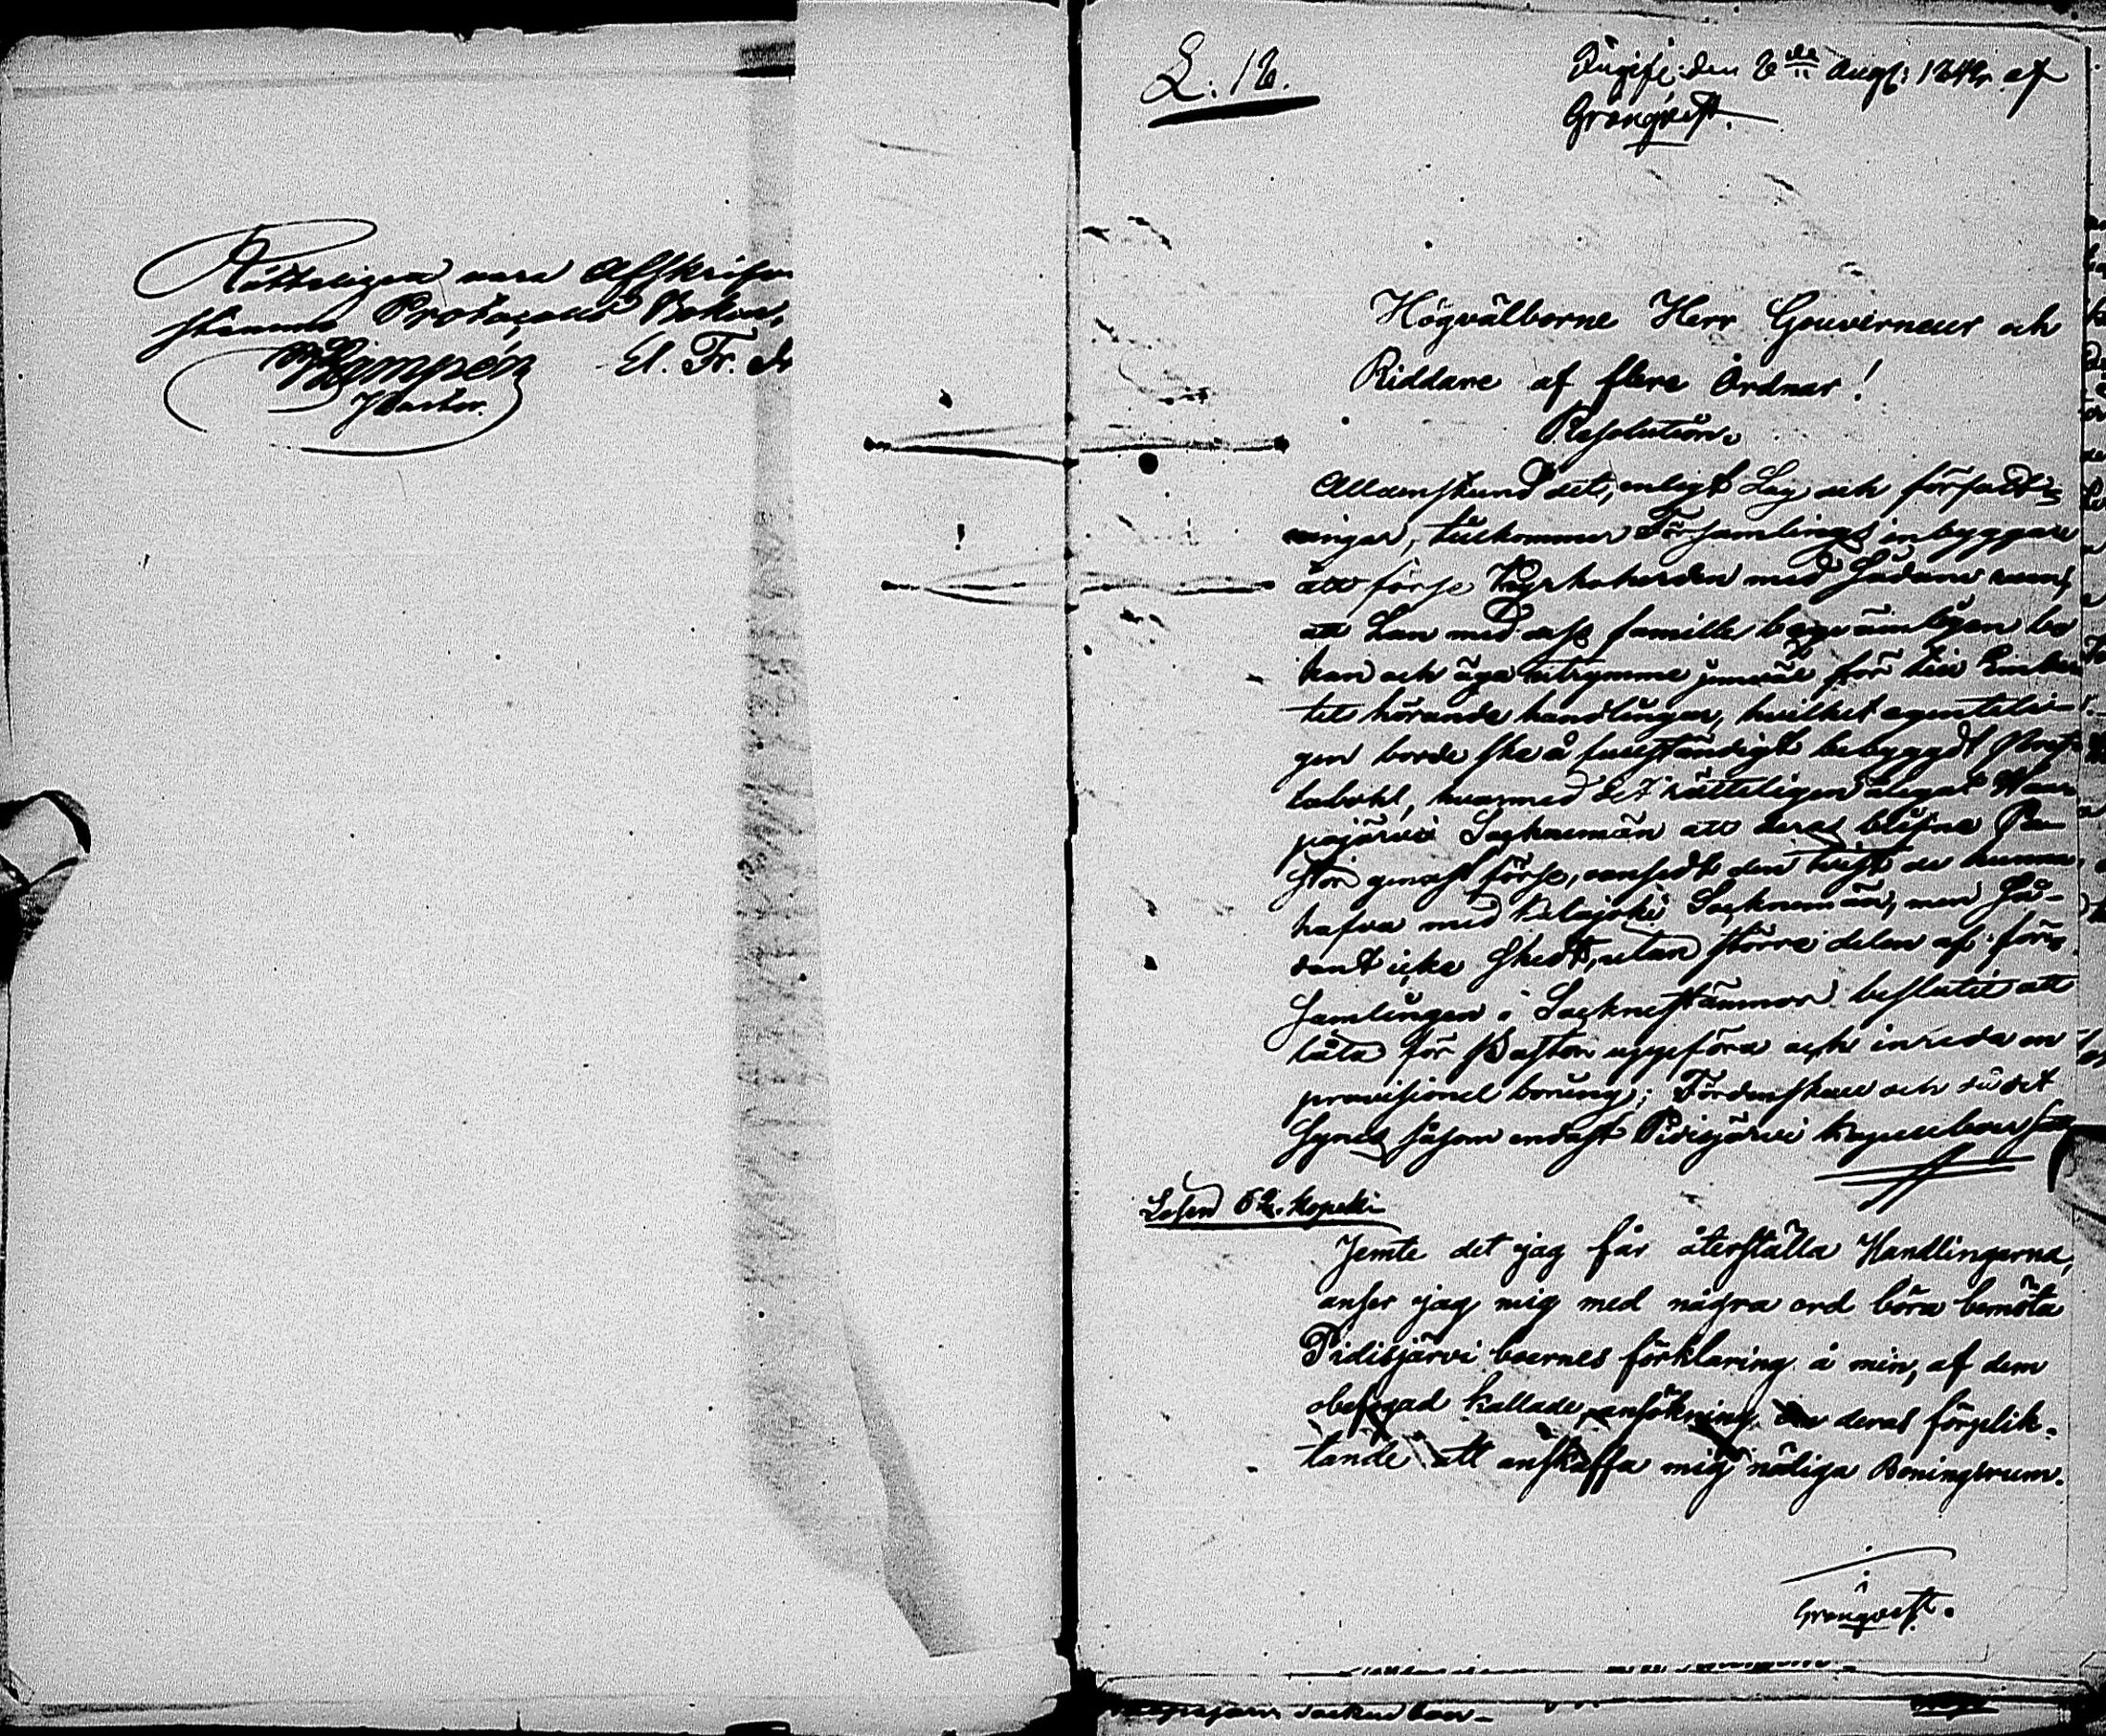 Rätteligen vara Afskrifven
stämma Protocolls Boken,
El. Fr.
Pastor.
L: 12.
Ingif: den 2de Aug: 1842 af
Grönqvist.
Högvälborne Herr Gouverneur och
Riddare af flere Ordnar!
Resolution.
Alldenstund det, enligt Lag och författ-
ningar, tillkommer Församlings inbyggare
att förse Kyrkoherden med sådane rum,
att han med dess famille beqvämligen bo
kan och äga utrymme jemväl för till Embe
tet hörande handlingar, hvilket egenteli-
gen borde ske å fullständigt bebyggdt Prest
labohl, hvarmed det rätteligen ålegat Haa
pajärvi Socknemän att deras blifne Pa-
stor genast förse, oansedt den tvist de kunna
hafva med Kalajoki Socknemän, men så-
dant icke skedt, utan större delen af för-
samlingen i Sockenstämmor beslutit att
låta för Pastorn uppföra och inreda en
provisionel boning; Fördenskull och då det
synes såsom endast Pidisjärvi Kapellboer
Lösen 62. kopek
Jemte det jag får återställa Handlingarna,
anser jag mig med några ord böra bemöta
Pidisjärvi boernes förklaring å min, af dem
obefogad kallade, ansökning om deras förplik-
tande att anskaffa mig nödiga Boningsrum.
Grönqvist.